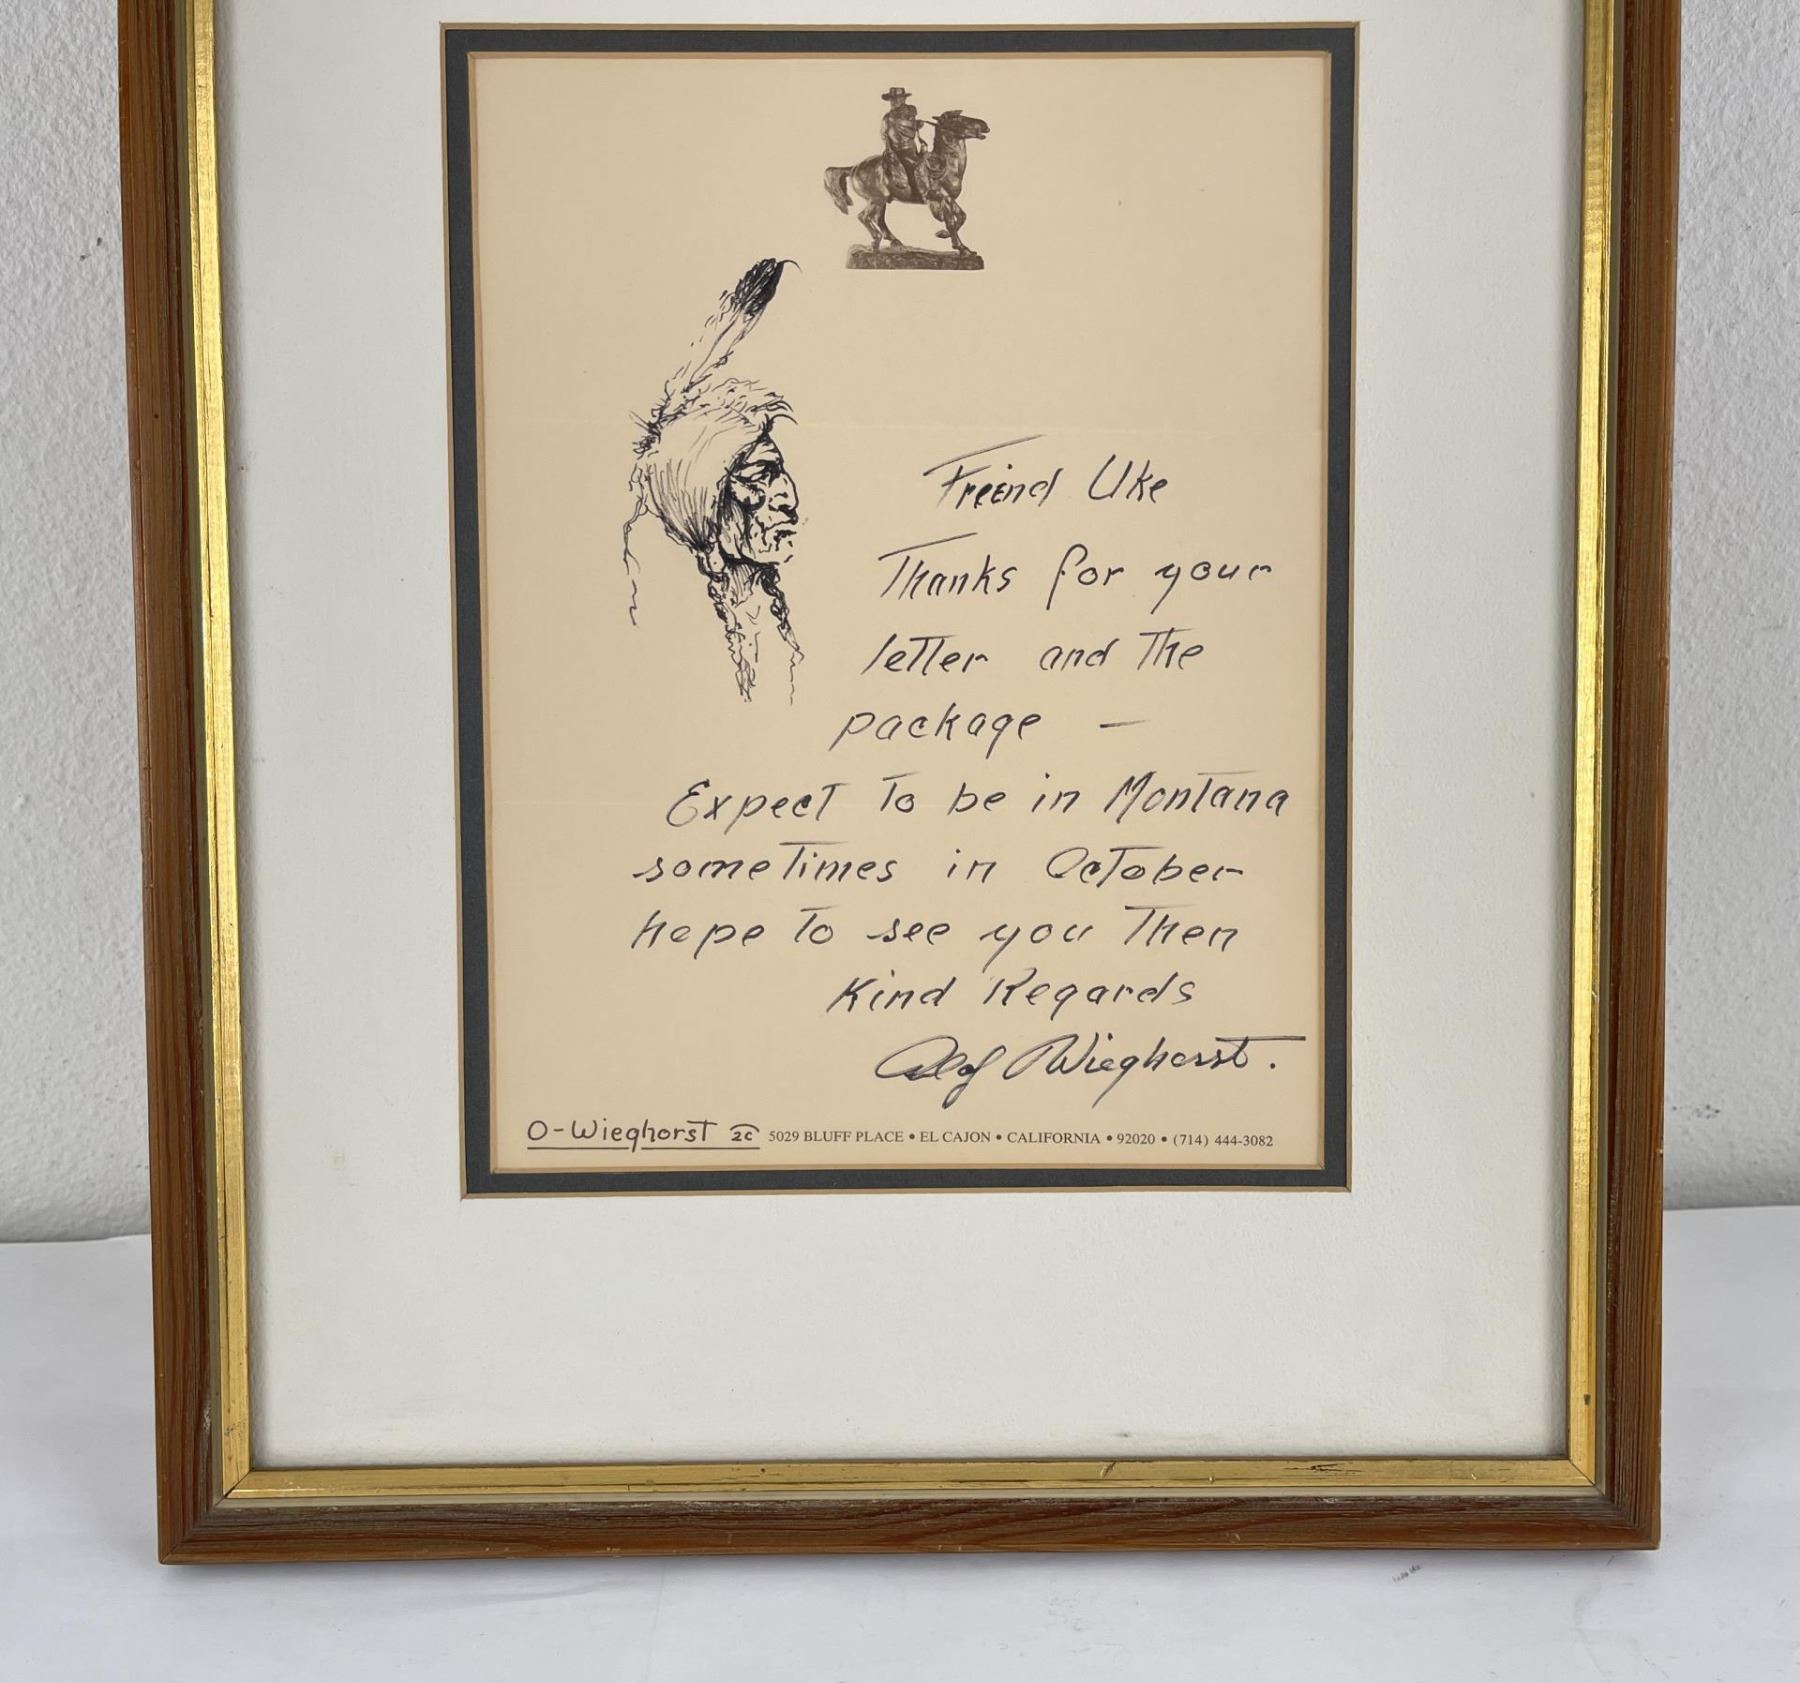 Freind Uke
Thanks for your
letter and the
package —
Expect to be in Montana
sometimes in October
hope to see you then
Kind Regards
Olaf Wieghorst.
O-Wieghorst 5029 BLUFF PLACE • EL CAJON • CALIFORNIA • 92020 • (714) 444-3082